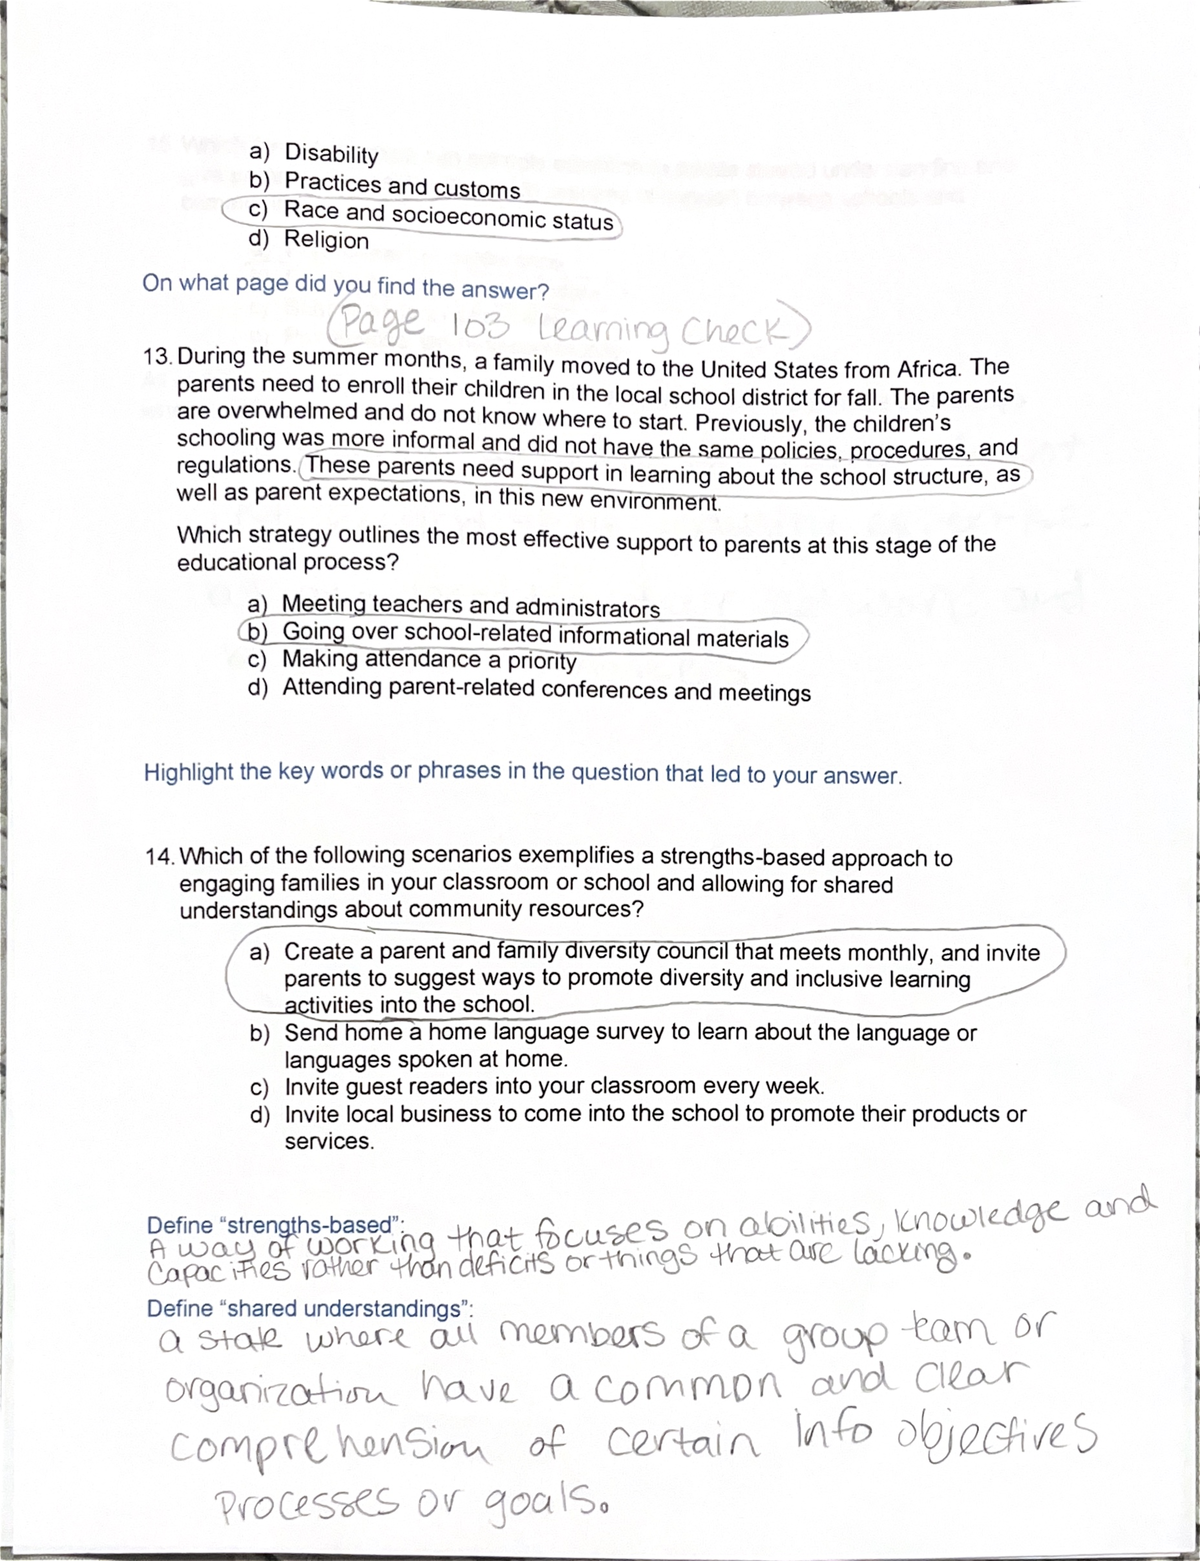 a) Disability
b) Practices and customs
c) Race and socioeconomic status
d) Religion
On what page did you find the answer?
(Page 103 Learning Check)
13. During the summer months, a family moved to the United States from Africa. The
parents need to enroll their children in the local school district for fall. The parents
are overwhelmed and do not know where to start. Previously, the children's
schooling was more informal and did not have the same policies, procedures, and
regulations. These parents need support in learning about the school structure, as
well as parent expectations, in this new environment.
Which strategy outlines the most effective support to parents at this stage of the
educational process?
a) Meeting teachers and administrators
b) Going over school-related informational materials
c) Making attendance a priority
d) Attending parent-related conferences and meetings
Highlight the key words or phrases in the question that led to your answer.
14. Which of the following scenarios exemplifies a strengths-based approach to
engaging families in your classroom or school and allowing for shared
understandings about community resources?
a) Create a parent and family diversity council that meets monthly, and invite
parents to suggest ways to promote diversity and inclusive learning
activities into the school.
b) Send home a home language survey to learn about the language or
languages spoken at home.
c) Invite guest readers into your classroom every week.
d) Invite local business to come into the school to promote their products or
services.
Define "strengths-based":
A way of working that focuses on abilities, knowledge and
Capacities rather than deficits or things that are lacking.
Define "shared understandings":
a state where all members of a group team or
organization have a common and clear
comprehension of certain info objectives
processes or goals.